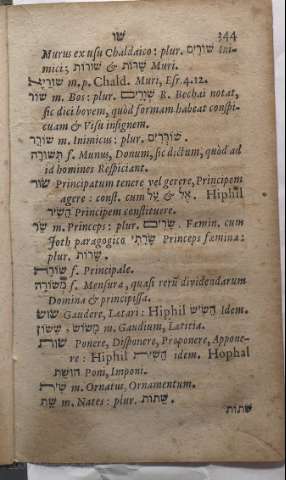 שו 344
Murus ex usu Chaldaico: plur. שׁוּרִים Ini-
mici; שָׁרוֹת & שׁוּרוֹת Muri.
m. p. Chald. Muri, Esr. 4. 12.
שׁוֹר m. Bos: plur. שְׁוָרִים R. Bechai notat,
sic dici bovem, quòd formam habeat conspi-
cuam & Visu insignem.
m. Inimicus: plur.
תְּשׁוּרָה f. Munus, Donum, sic dictum, quòd ad
id homines Respiciant.
שׂוּר Principatum tenere vel gerere, Principem
agere: const. cum עַל & אֶל. Hiphil
הֵשִׂיר Principem constituere.
שַׂר m. Princeps: plur. שָׂרִים. Fæmin. cum
Joth paragogico שָׂרָתִי Princeps fæmina:
plur. שָׂרוֹת.
f. Principale.
מְשׂוּרָה f. Mensura, quasi rerū dividendarum
Domina & principissa.
שׂוּשׂ Gaudere, Lætari: Hiphil הֵשִׂישׂ Idem.
שָׂשׂוֹן, מָשׂוֹשׂ m. Gaudium, Lætitia.
שׁוּת Ponere, Disponere, Proponere, Appone-
re: Hiphil הֵשִׁית idem. Hophal
הוּשַׁת Poni, Imponi.
שִׁית m. Ornatus, Ornamentum.
שֵׁת m. Nates: plur. שָׁתוֹת.
שתות